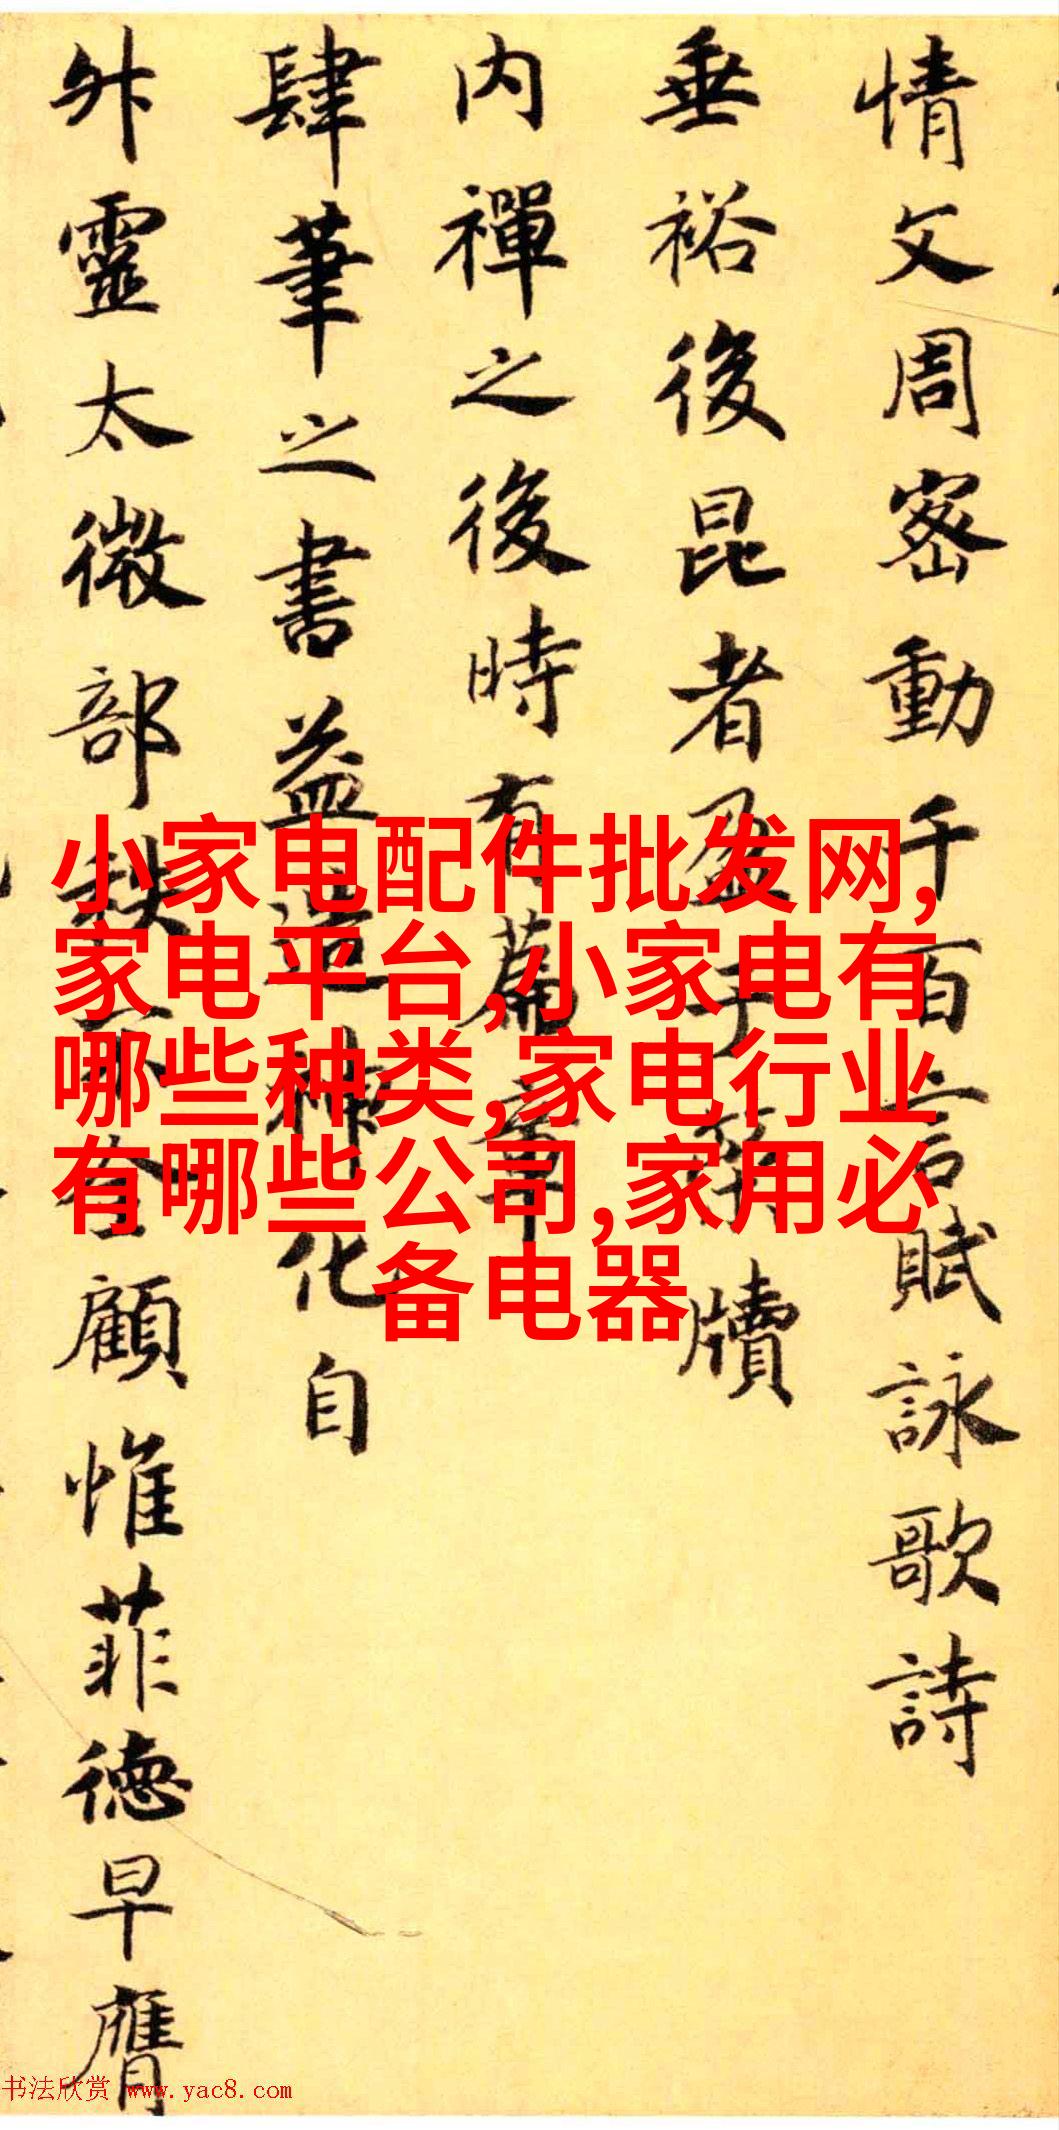 情文周密動千百言賦詠歌詩
垂裕後昆者盈于簡牘
内禪之後時有篇章
肆筆之書益造神化自
外靈太微部秩奈合顧惟菲德早膺
小家电配件批发网,
家电平台,小家电有
哪些种类,家电行业
有哪些公司,家用必
备电器
书法欣赏 www.yac8.com